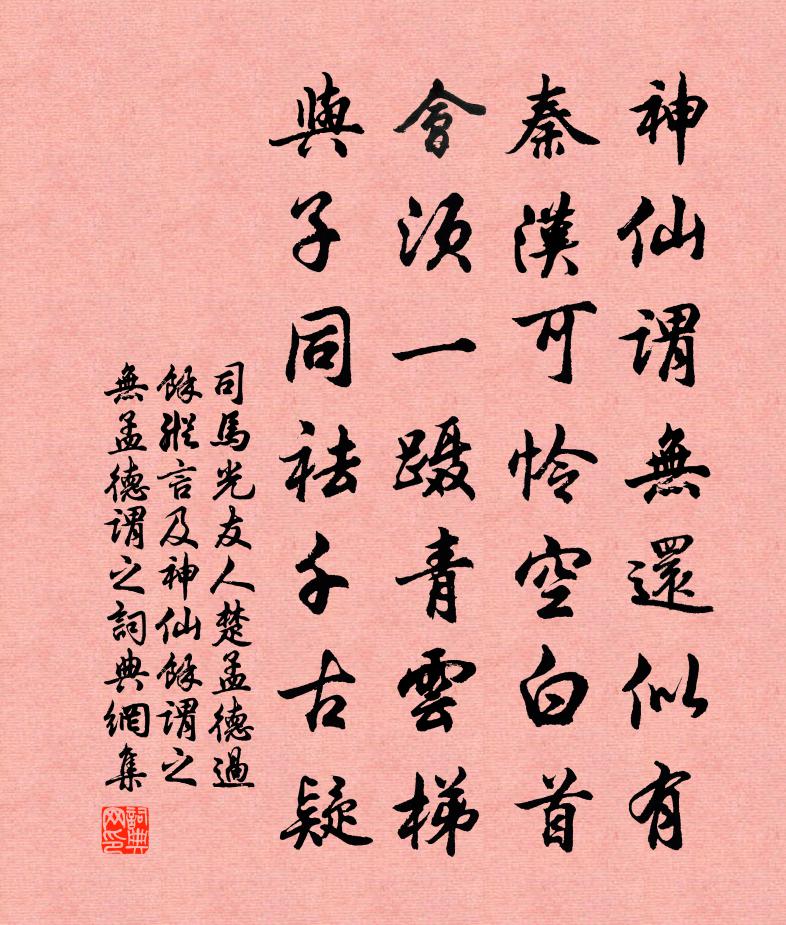 神仙謂無還似有
秦漢可怜空白首
會須一蹑青雲梯
與子同祛千古疑
司馬光友人楚孟德過
餘縱言及神仙餘謂之
無孟德謂之詞典網集
詞典网印